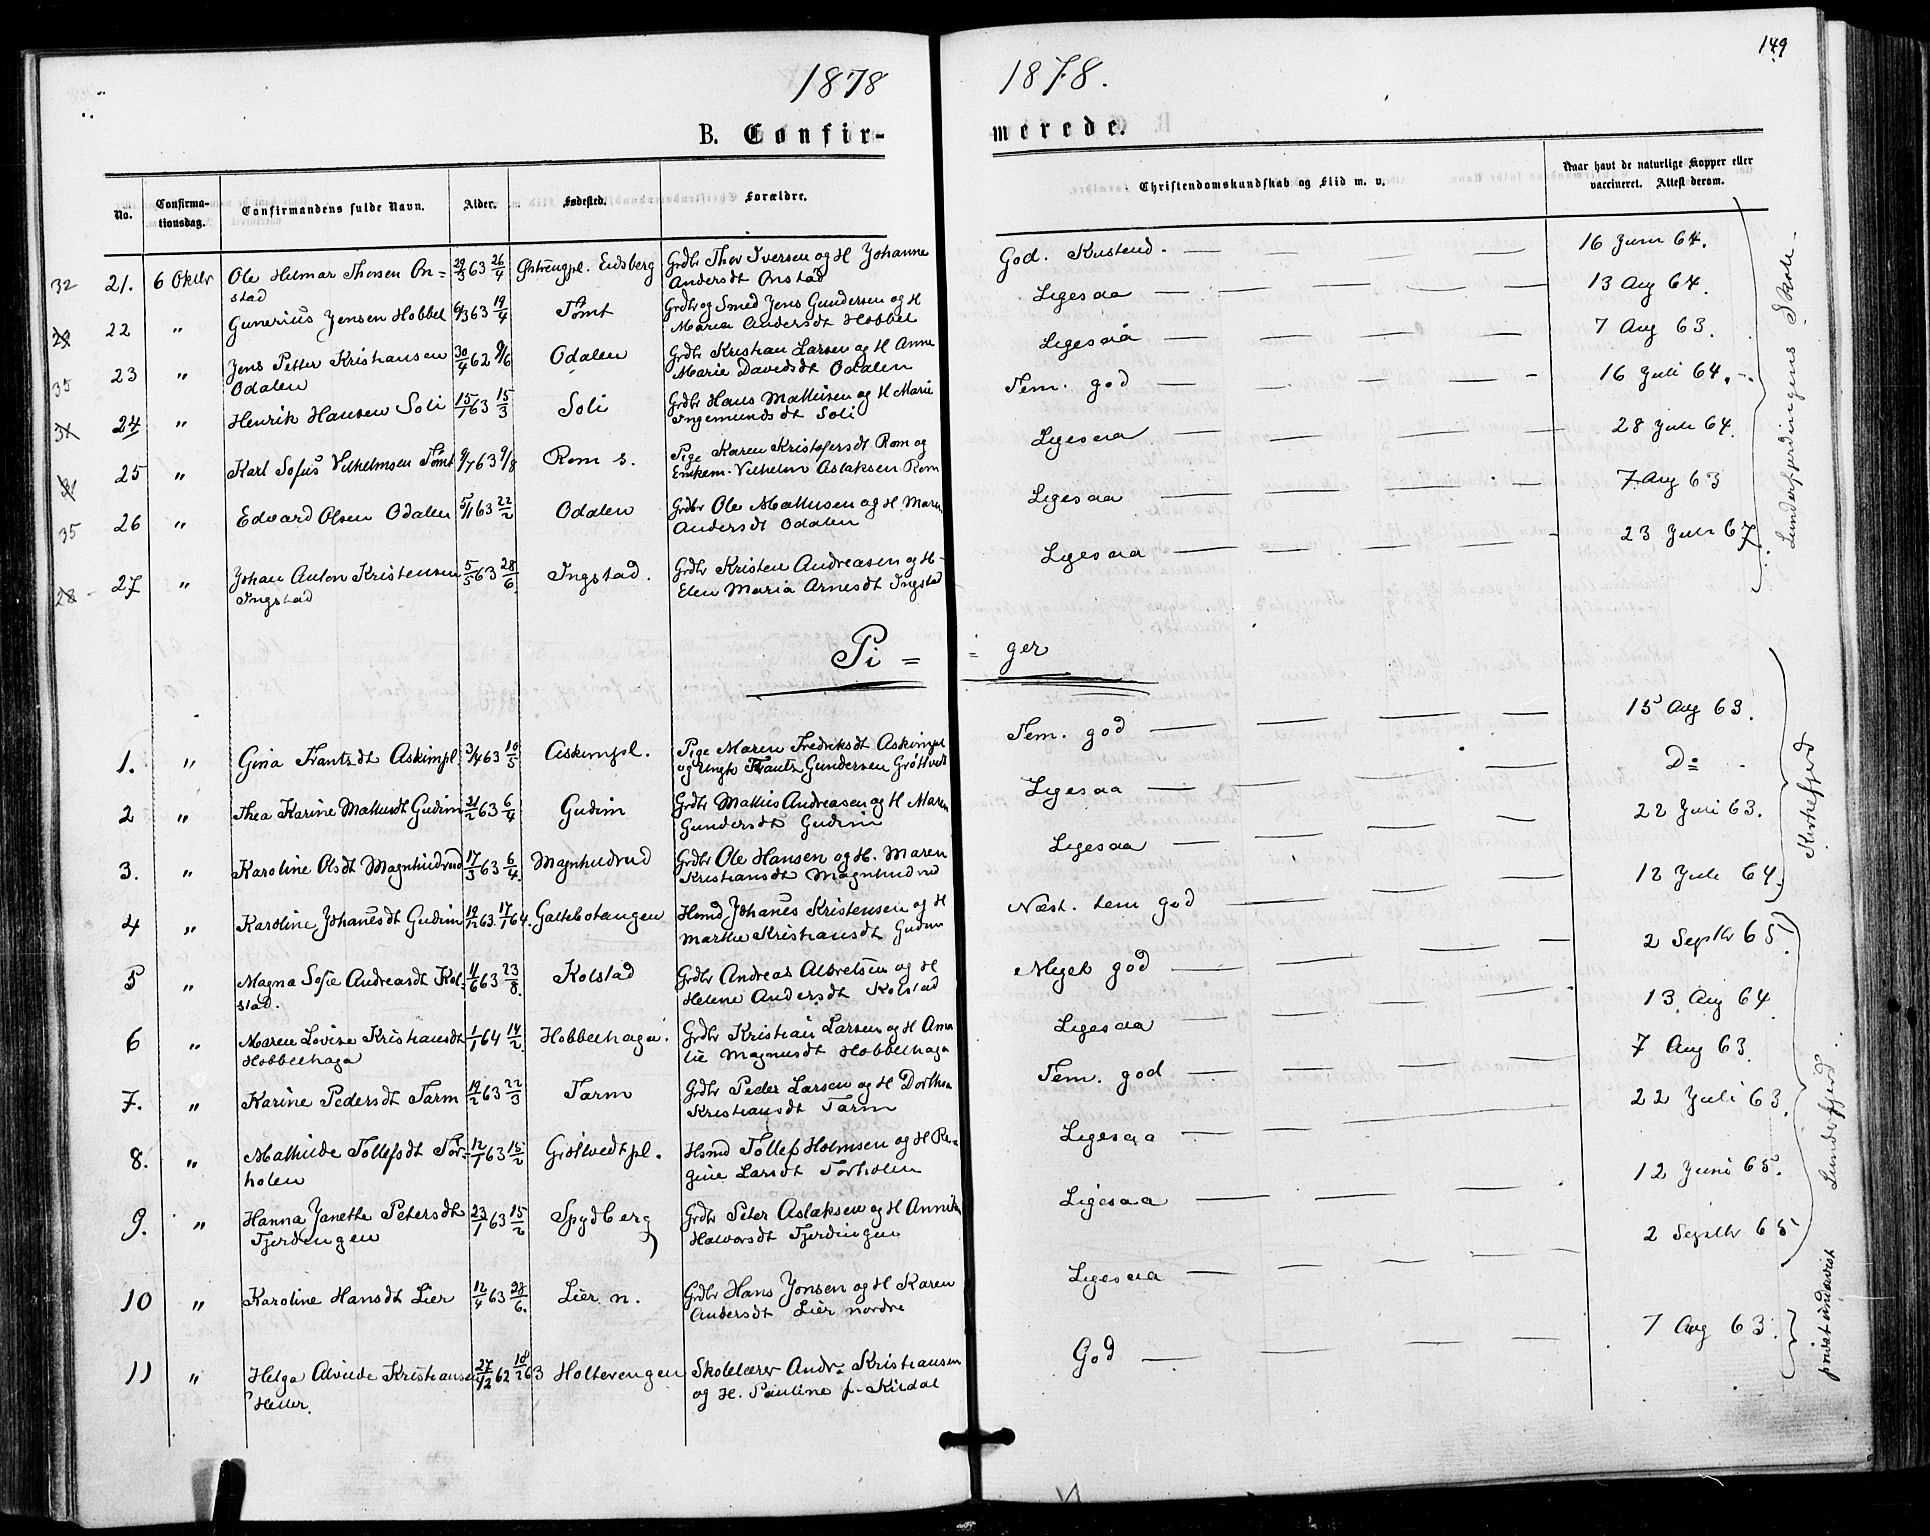 149
1878 1878.
B. Confir- merede.
No. Confirma- Confirmandens fulde Navn. Alder. Fødested. Forældre. Christendomskundskab og Flid m. v. Naar havt de naturlige Kopper eller
tionsdag. vaccineret. Attest derom.
32 21. 6 Oktbr Ole Helmar Thorsen On= 29/3 63 26/4 Østrengpl. Eidsberg Grdbr Thor Iversen og H Johanne God. Kristend. 16 Juni 64.
stad Andersdt Onstad
22 " Gunerius Jensen Hobbel 6/3 63 19/4 Tömt Grdbr og Smed Jens Gundersen og H Ligesaa 13 Aug 64.
Maria Andersdt Hobbel
35 23 " Jens Petter Kristiansen 30/4 62 9/6 Odalen Grdbr Kristian Larsen og H Anne Ligesaa 7 Aug 63.
Odalen Marie Davidsdt Odalen
24 " Henrik Hansen Soli 15/1 63 15/3 Soli Grdbr Hans Mathisen og H Marie Tem. god 16 Juli 64.
Ingemundsdt Soli
25 " Karl Sofus Vilhelmsen Tömt 9/7 63 9/8 Rom s. Pige Karen Kristofersdt Rom og Ligesaa 28 Juli 64.
Enkem. Vilhelm Aslaksen Rom
35 26 " Edvard Olsen Odalen 5/1 63 22/2 Odalen Grdbr Ole Mathisen og H. Maren Ligesaa 7 Aug 63
Andersdt Odalen
28 27 " Johan Anton Kristensen 5/5 63 28/6 Ingstad. Grdbr Kristen Andreasen og H- Ligesaa 23 Juli 67
Ingstad Elen Maria Arnesdt Ingstad
Lunderfjerdingens Skole
Pi = = ger
1. " Gina Frantzdt Askimpl 3/4 63 10/5 Askimpl. Pige Maren Fredriksdt Askimpl Tem. god 15 Aug 63.
og Ungk Frantz Gundersen Gröttvedt
2 " Thea Karine Mathisdt Gudim 21/2 63 6/4 Gudim Grdbr Mathis Andreasen og H Maren Ligesaa Do
Gundersdt Gudim
3. " Karoline Olsdt Magnhudrud 17/3 63 6/4. Magnhudrud Grdbr Ole Hansen og H. Maren Ligesaa 22 Juli 63.
Kristiansdt Magnhudrud
4 " Karoline Johanesdt Gudim 19/12 63 17/1 64. Galtebotangen Hsmd Johanes Kristensen og H Næst. tem god 12 Juli 64.
Marthe Kristiansdt Gudim
Kirkefjerd
5 " Magna Sofie Andreasdt Kol- 11/6 63 23/8. Kolstad Grdbr Andreas Albretsen og H Meget god 2 Septbr 65
stad. Helene Andersdt Kolstad
6 " Maren Lovise Kristiansdt 1/1 64 14/2. Hobbelhaga. Grdbr Kristian Larsen og H Ama Ligesaa 13 Aug 64
Hobbelhaga lie Magnusdt Hobbelhaga
7. " Karine Pedersdt Tarm 19/2 63 22/3 Tarm Grdbr Peder Larsen og H Dorthea Tem. god 7 Aug 63
Kristiansdt Tarm
8. " Mathilde Tollefsdt Tor- 12/1 63 15/2 Gröttvedtpl. Hsmd Tollef Holmsen og H Re- Ligesaa 22 Juli 63.
holen gine Larsdt Torholen
9. " Hanna Janette Petersdt 23/1 63 15/2 Spydberg Grdbr Peter Aslaksen og H Annike Ligesaa 12 Juni 65.
Fjerdingen Halvorsdt Fjerdingen
10 " Karoline Hansdt Lier 12/4 63 28/6. Lier n. Grdbr Hans Jonsen og H Karen Ligesaa 2 Septbr 65
Andersdt Lier nordre
Lunderfjerd.
11 " Helga Alvilde Kristiansen 27/12 62 18/2 63 Holterengen Skolelærer Andr. Kristiansen God 7 Aug 63.
Heller. og H. Pauline f. Kirdal
privat undervist